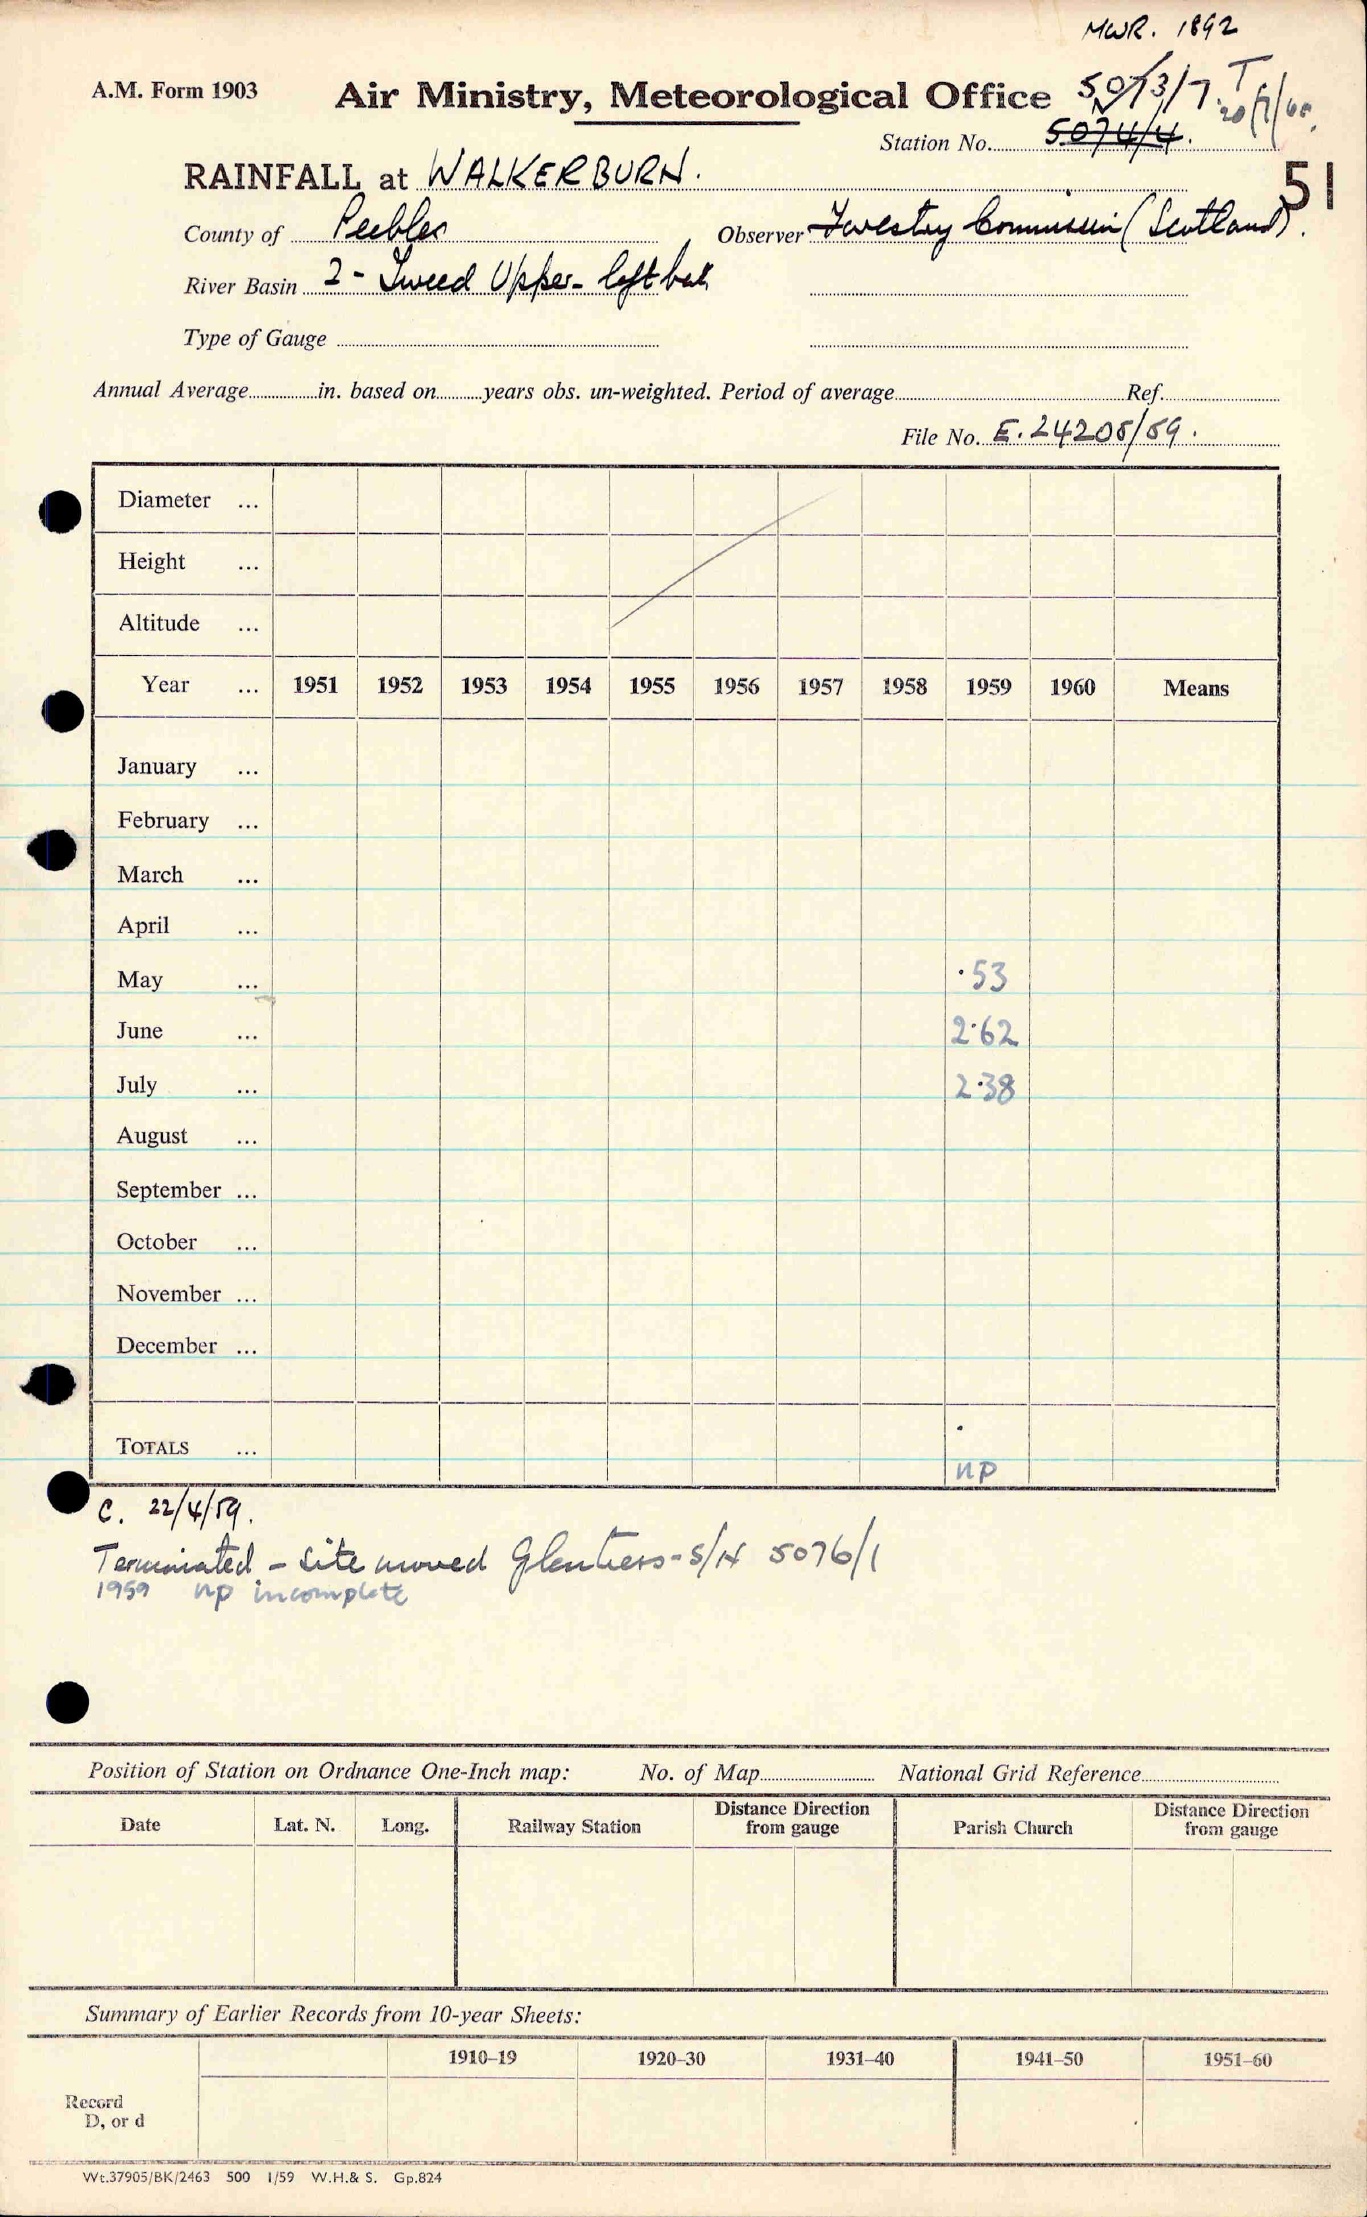 MWR. 1892
A.M. Form 1903
Air Ministry, Meteorological Office 5073/7. T
Station No. 5074/4. 20/7/60.
RAINFALL at WALKERBURN.
51
County of Peebles Observer Forestry Commission (Scotland).
River Basin 2 - Tweed Upper - left bank
Type of Gauge
Annual Average in. based on years obs. un-weighted. Period of average Ref.
File No. E. 24205/59.
Diameter ...
Height ...
Altitude ...
Year ... 1951 1952 1953 1954 1955 1956 1957 1958 1959 1960 Means
January ...
February ...
March ...
April ...
May ... ·53
June ... 2·62
July ... 2·38
August ...
September ...
October ...
November ...
December ...
TOTALS ...
np
C. 22/4/59.
Terminated - Site moved Glentress - S/N 5076/1
1959 np incomplete
Position of Station on Ordnance One-Inch map: No. of Map National Grid Reference
Date Lat. N. Long. Railway Station Distance Direction from gauge Parish Church Distance Direction from gauge
Summary of Earlier Records from 10-year Sheets:
1910–19 1920–30 1931–40 1941–50 1951–60
Record
D, or d
Wt.37905/BK/2463 500 1/59 W.H.& S. Gp.824